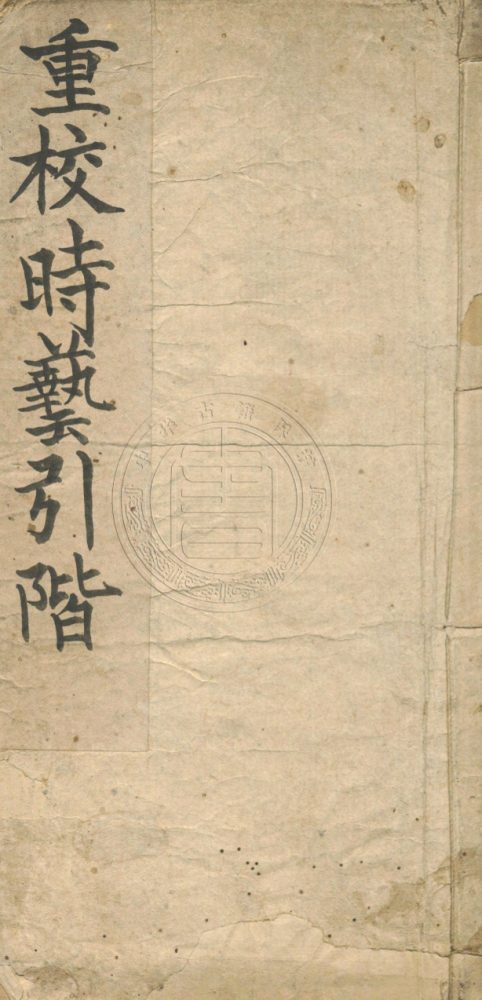 重校時藝引階